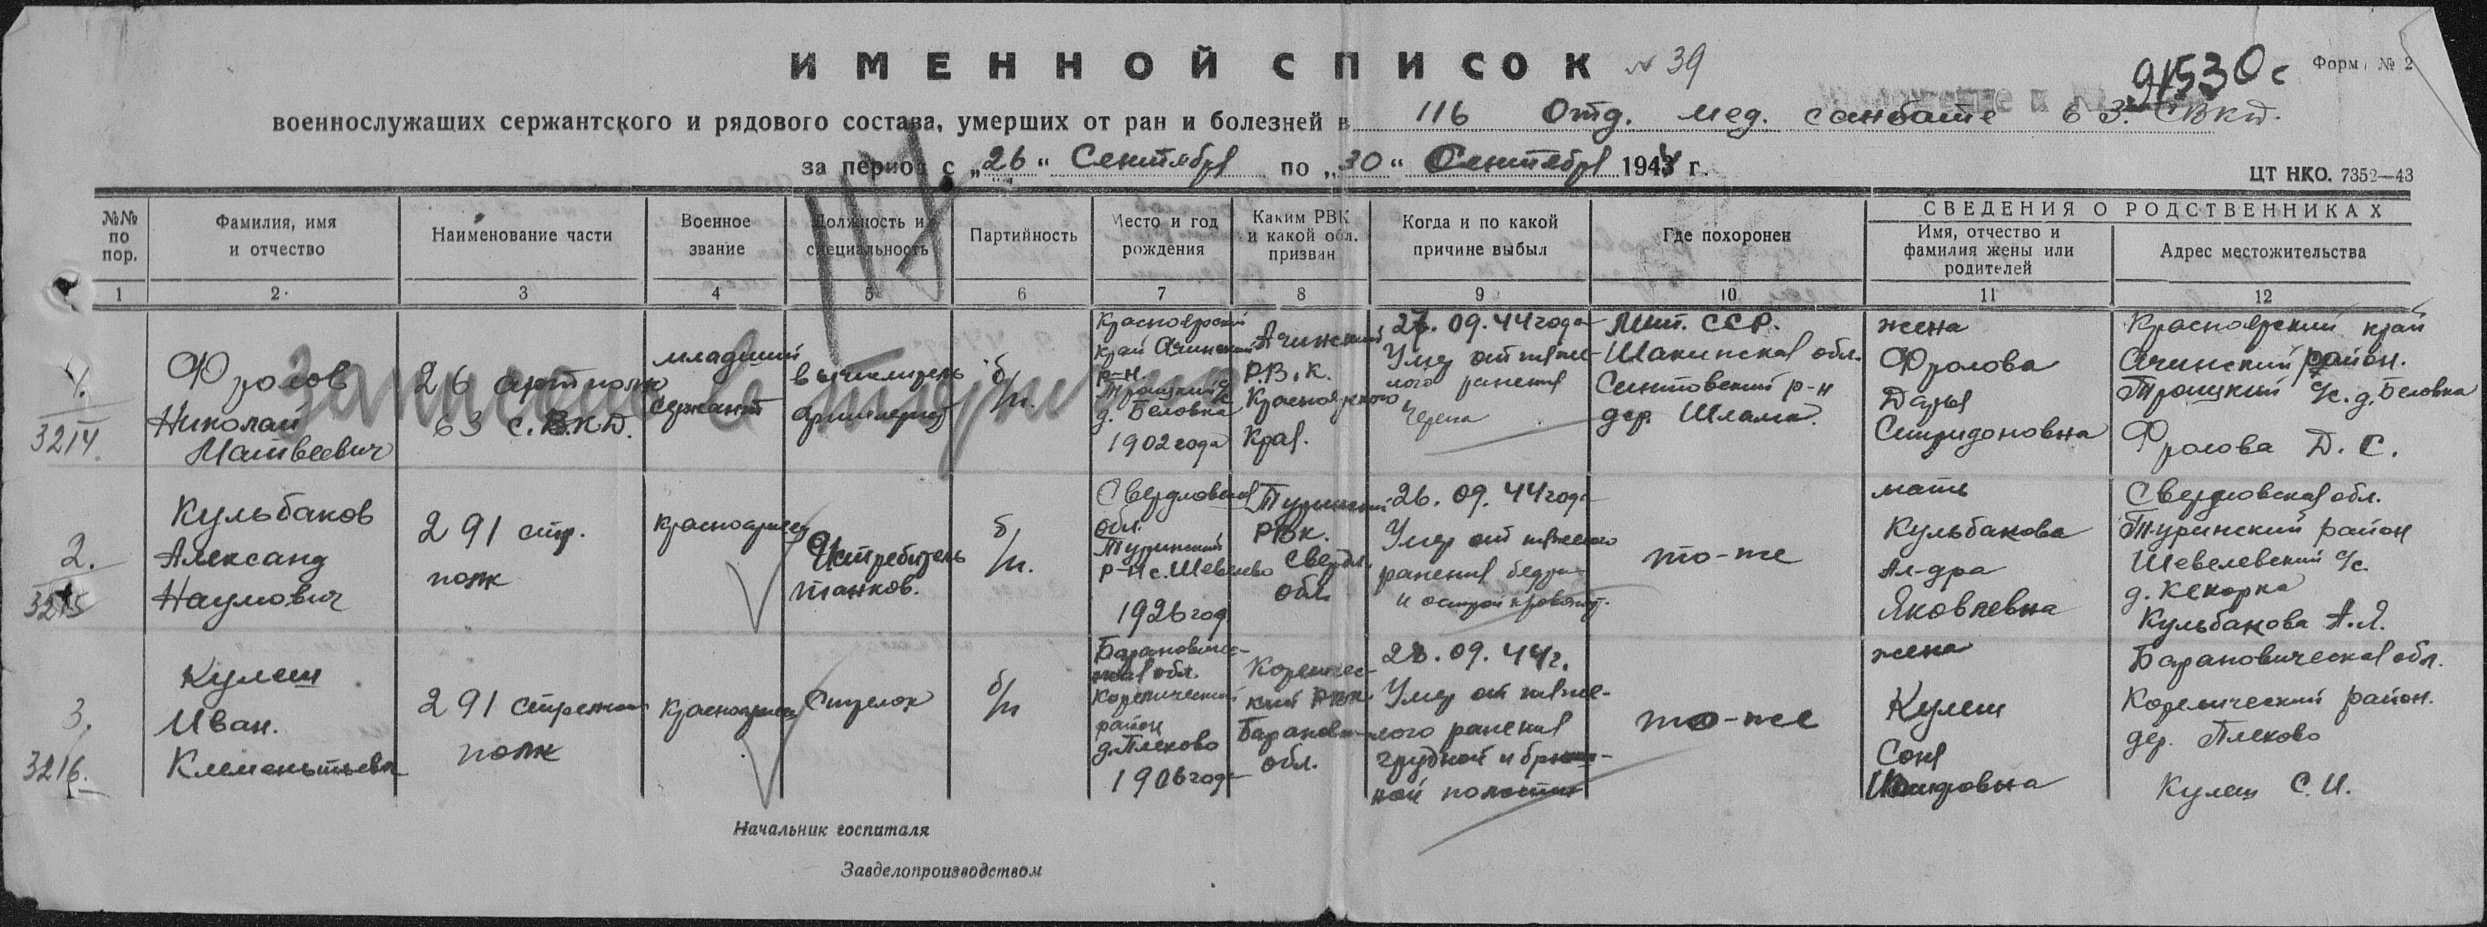 ИМЕННОЙ СПИСОК № 39
91530с
Форм № 2
военнослужащих сержантского и рядового состава, умерших от ран и болезней в 116 Отд. мед. санбате 63. СВКД.
за период с „26“ Сентября по „30“ Сентября 1944 г.
ЦТ НКО. 7352—43
№№ по пор.
Фамилия, имя и отчество
Наименование части
Военное звание
Должность и специальность
Партийность
Место и год рождения
Каким РВК и какой обл. призван
Когда и по какой причине выбыл
Где похоронен
СВЕДЕНИЯ О РОДСТВЕННИКАХ
Имя, отчество и фамилия жены или родителей
Адрес местожительства
1 2 3 4 5 6 7 8 9 10 11 12
1.
3214.
Фролов
Николай
Матвеевич
26 артполк
63 с.В.К.Д.
младший
сержант
вычислитель
б/п.
Красноярский
край Ачинский
р-н
Троицкий с/с
д. Беловка
1902 года
Ачинский
Р.В.К.
Красноярского
Края.
27.09.44 года
Умер от тяже-
лого ранения
черепа
Лит. ССР.
Шакинская обл.
Синтовский р-н
дер. Шлама.
жена
Фролова
Дарья
Спиридоновна
Красноярский край
Ачинский район.
Троицкий с/с. д. Беловка
Фролова Д. С.
2.
3215
Кульбаков
Александ
Наумович
291 стр.
полк
Красноармеец
Истребитель
танков.
б/п.
Свердловская
обл.
Туринский
р-н с. Шевелево
1926 год
Туринский
РВК.
Свердл.
обл.
26.09.44 года
Умер от тяжелого
ранения бедра
и острой кровопот.
то-же
мать
Кульбакова
Ал-дра
Яковлевна
Свердловская обл.
Туринский район
Шевелевский с/с.
д. Кекорка
Кульбакова А.Я.
3.
3216.
Кулеш
Иван.
Клементьевич
291 стрелковый
полк
Красноармеец
Стрелок
б/п
Барановиче-
ская обл.
Кореличский
район
д. Плеково
1906 года
Кореличес-
кий РВК
Баранович.
обл.
28.09.44г.
Умер от тяже-
лого ранения
грудной и брюш-
ной полости
то-же
жена
Кулеш
Соня
Барановическая обл.
Кореличский район.
дер. Плеково
Кулеш С.И.
Начальник госпиталя
Завделопроизводством